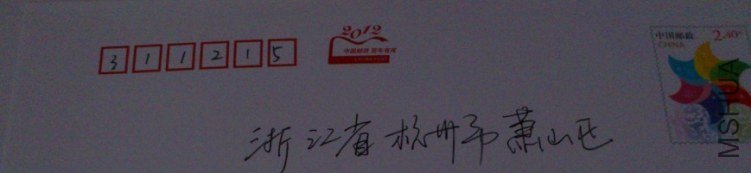 311215
2012
中国邮政 贺年有奖
中国邮政 2.40元
CHINA
MSHUA
浙江省杭州市萧山区